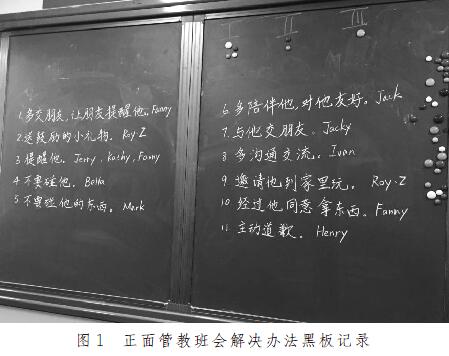 1. 多交朋友，让朋友提醒他。Fanny
2. 送鼓励的小礼物。Roy-Z
3. 提醒他。Jerry, Kathy, Fanny
4. 不要碰他。Bella
5. 不要碰他的东西。Mark
I II III
6. 多陪伴他，对他友好。Jack
7. 与他交朋友。Jacky
8. 多沟通交流。Ivan
9. 邀请他到家里玩。Roy-Z
10. 经过他同意拿东西。Fanny
11. 主动道歉。Henry
图1 正面管教班会解决办法黑板记录